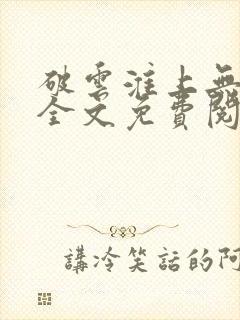 破雲淮上無
全文免費閱
講冷笑話的阿